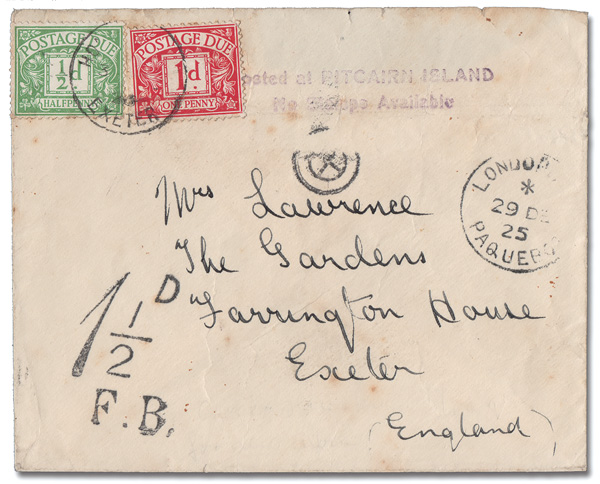 POSTAGE DUE
½d
HALFPENNY
POSTAGE DUE
1d
ONE PENNY
EXETER
Posted at PITCAIRN ISLAND
No Stamps Available
LONDON
*
29 DE
25
PAQUEBOT
Mrs Lawrence
The Gardens
Farrington House
Exeter
(England)
1½D
F.B.